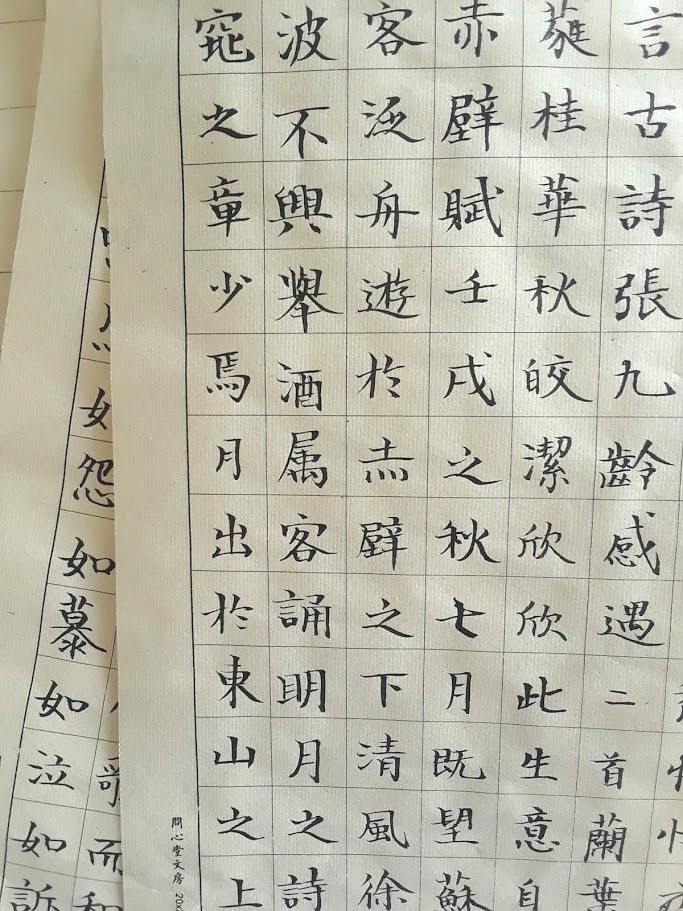 言古詩張九齡感遇二首蘭葉
蕤桂華秋皎潔欣欣此生意自
赤壁賦壬戌之秋七月既望蘇
客泛舟遊於赤壁之下清風徐
波不興舉酒属客誦明月之詩
窕之章少焉月出於東山之上
問心堂文房
歌而和
如怨如慕如泣如訴